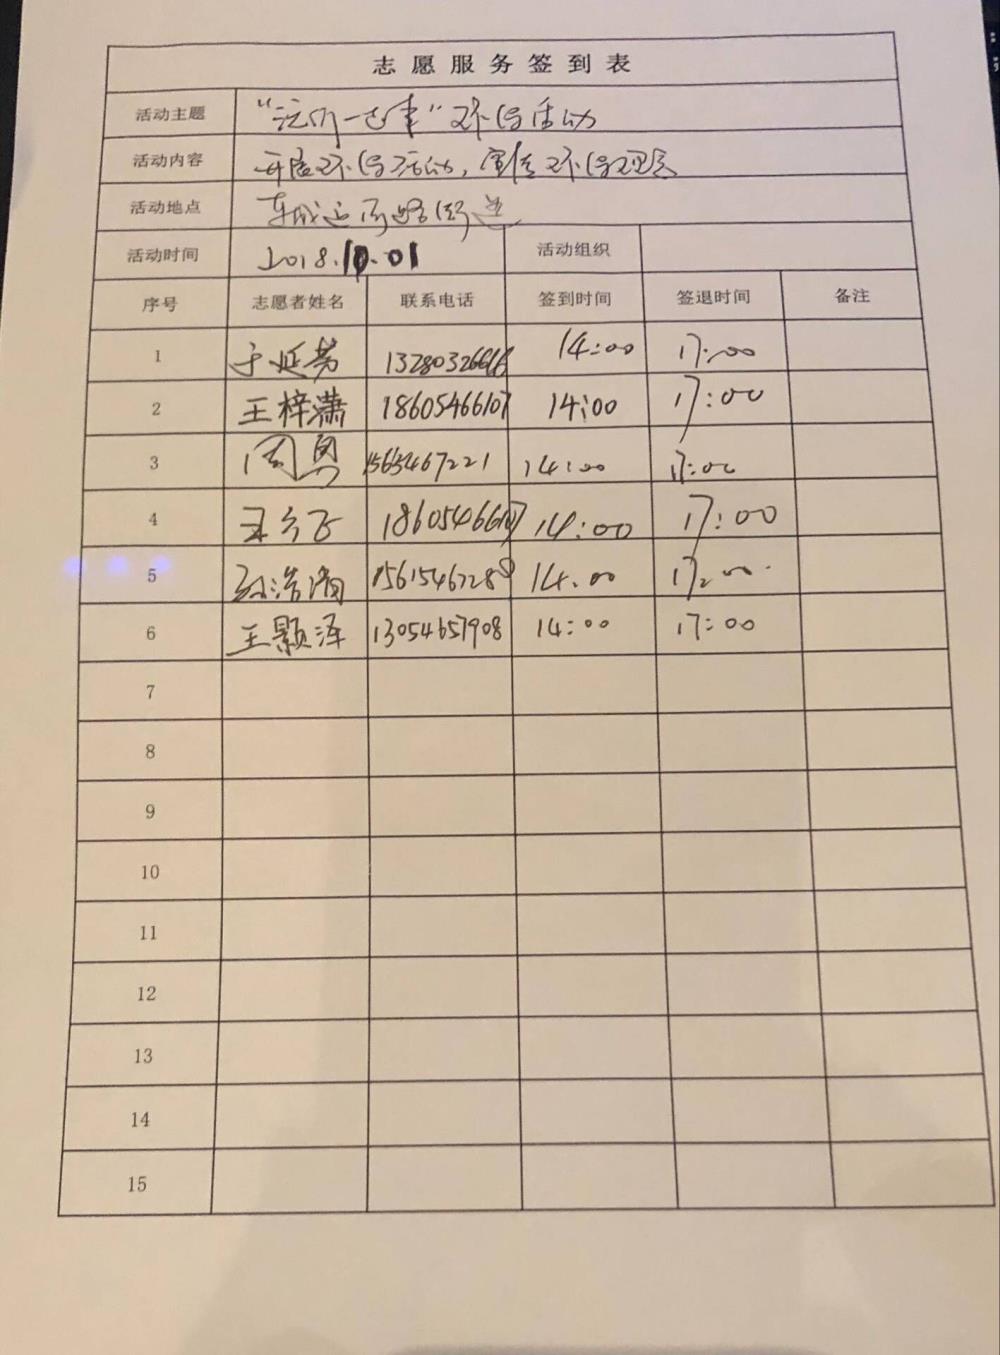 志愿服务签到表
活动主题 环保活动
活动内容 开展环保活动，宣传环保理念
活动地点 东城运河路街道
活动时间 2018.10.01 活动组织
序号 志愿者姓名 联系电话 签到时间 签退时间 备注
1 于延芳 14:00 17:00
2 王梓潇 18605466107 14:00 17:00
3 周勇 15654467221 14:00 17:00
4 18605466107 14:00 17:00
5 14:00 17:00
6 王颢泽 13054657908 14:00 17:00
7
8
9
10
11
12
13
14
15